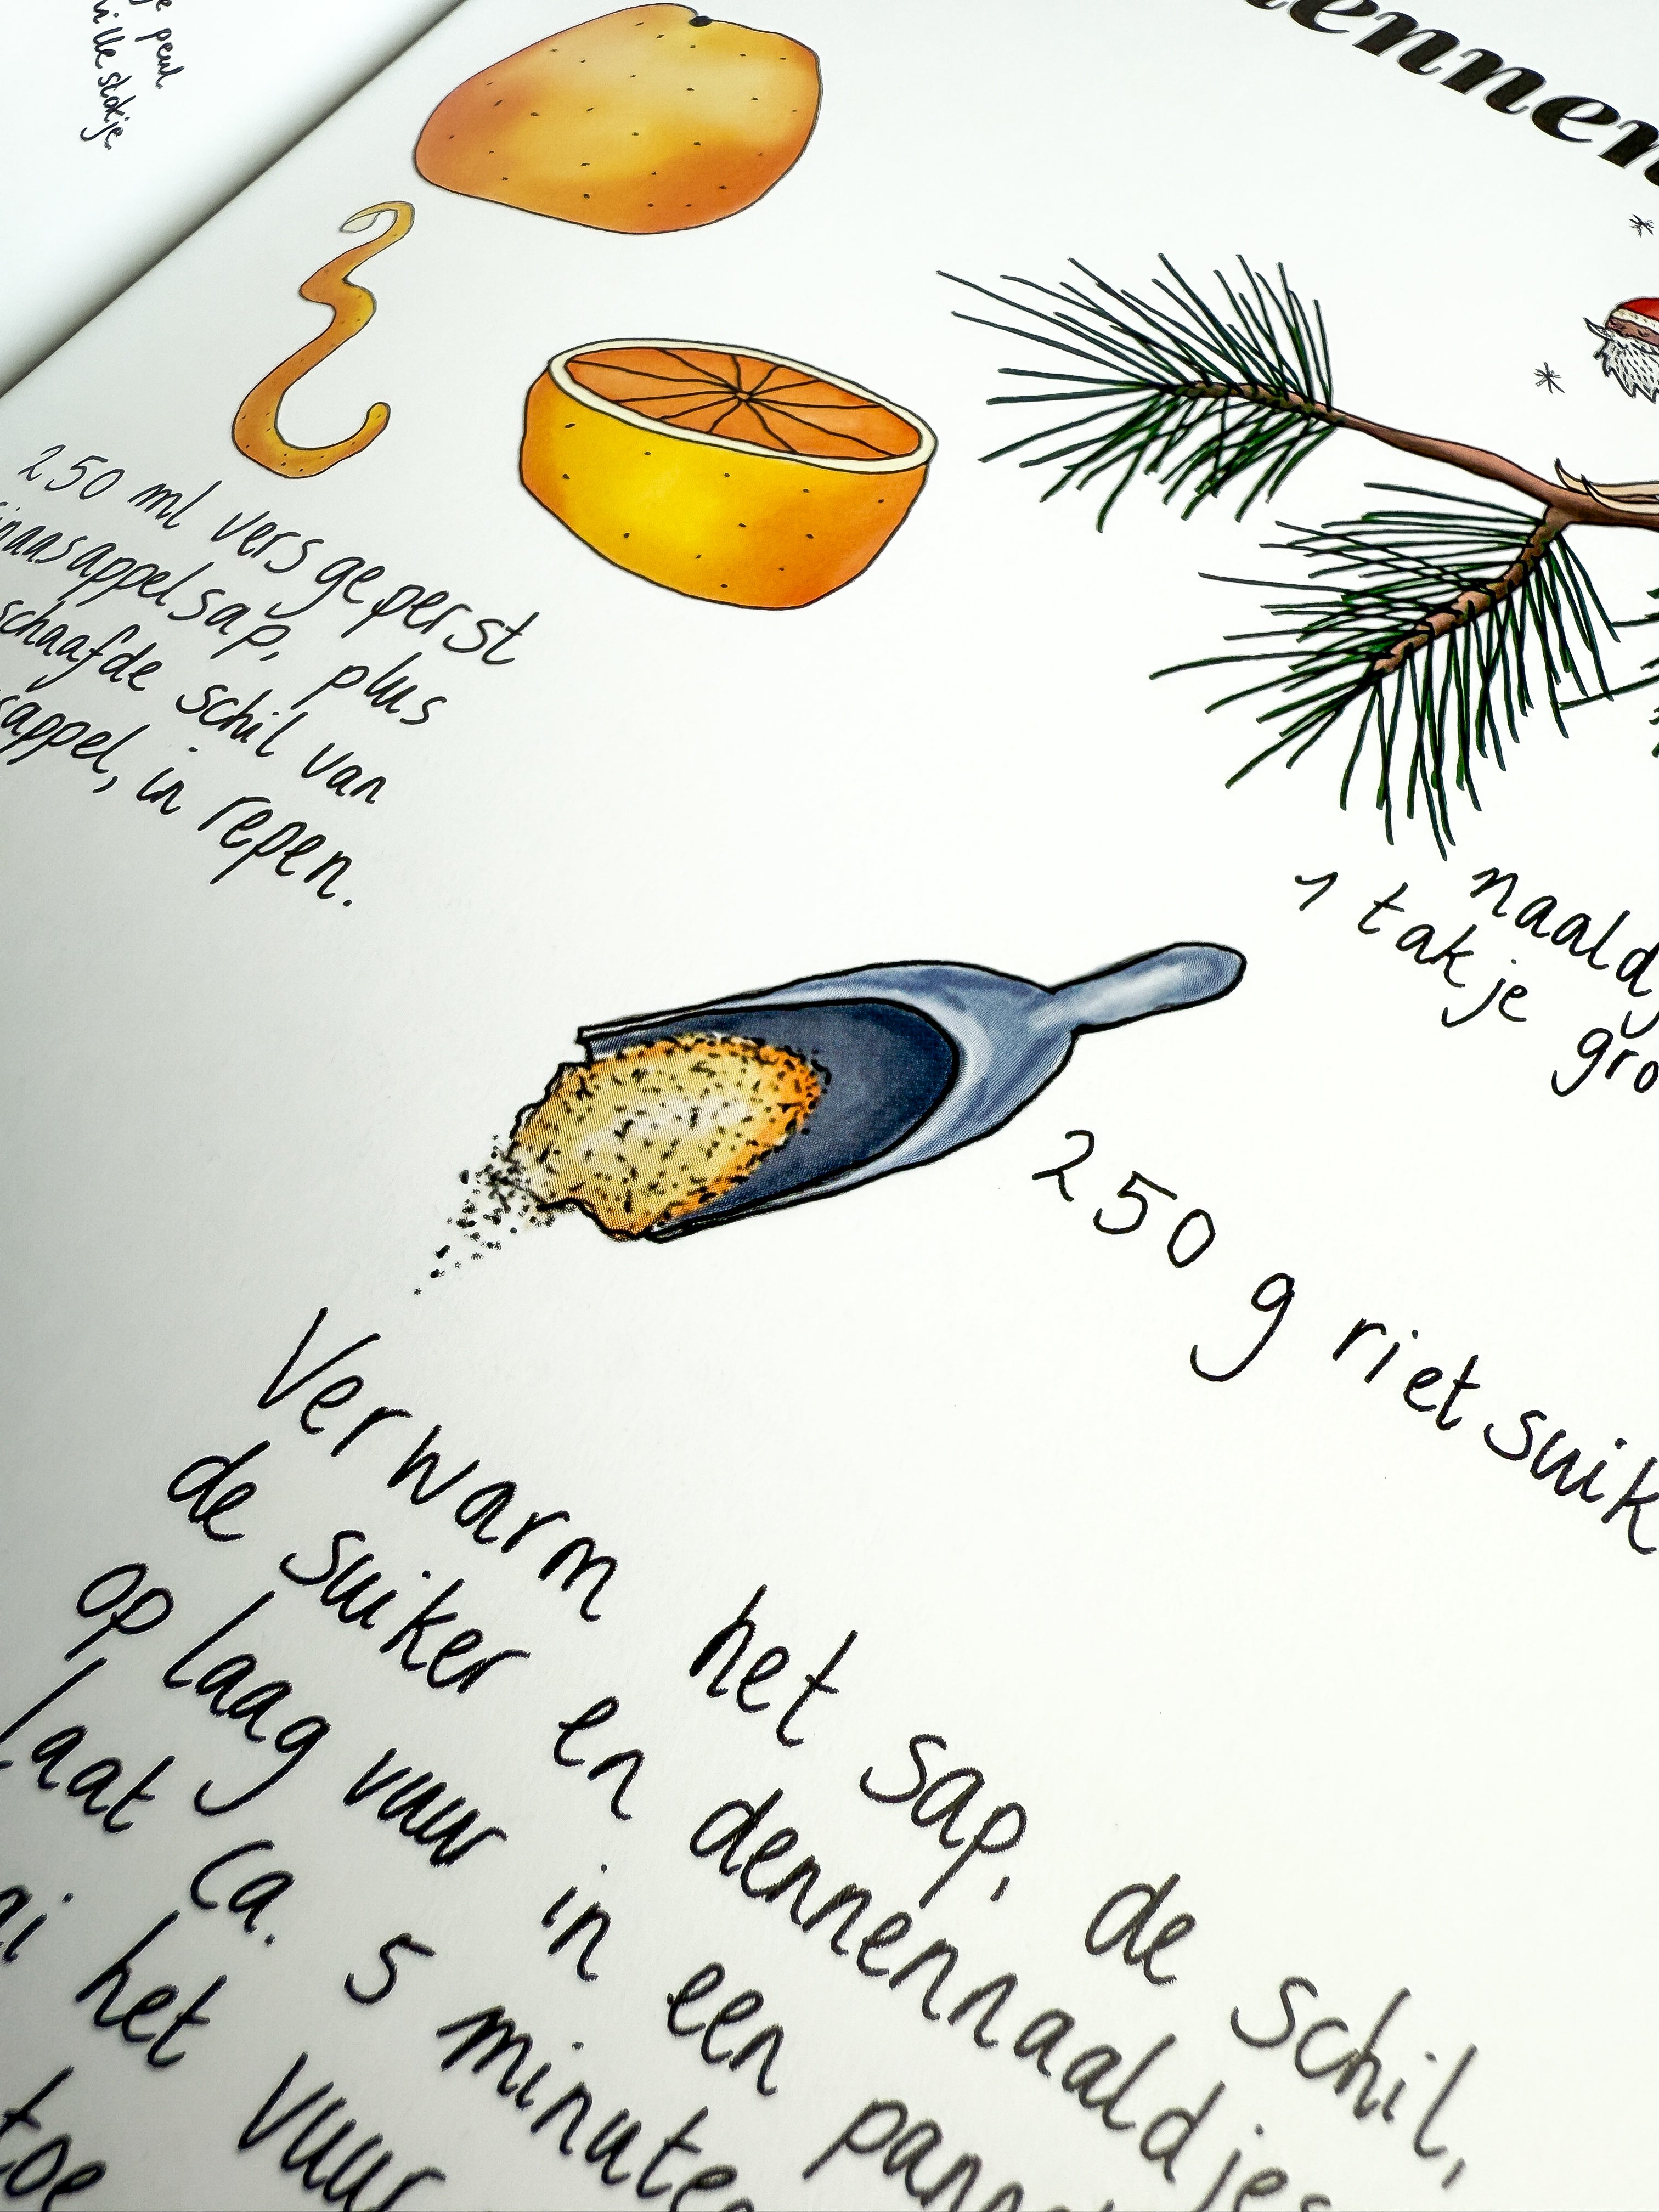 ennen
250 ml vers geperst
inaasappelsap, plus
schaafde schil van
sappel, in repen.
naaldj
1 takje gro
250 g rietsuik
Verwarm het sap, de schil,
de suiker en dennennaaldjes
op laag vuur in een pann
laat ca. 5 minute
het vuur
toe